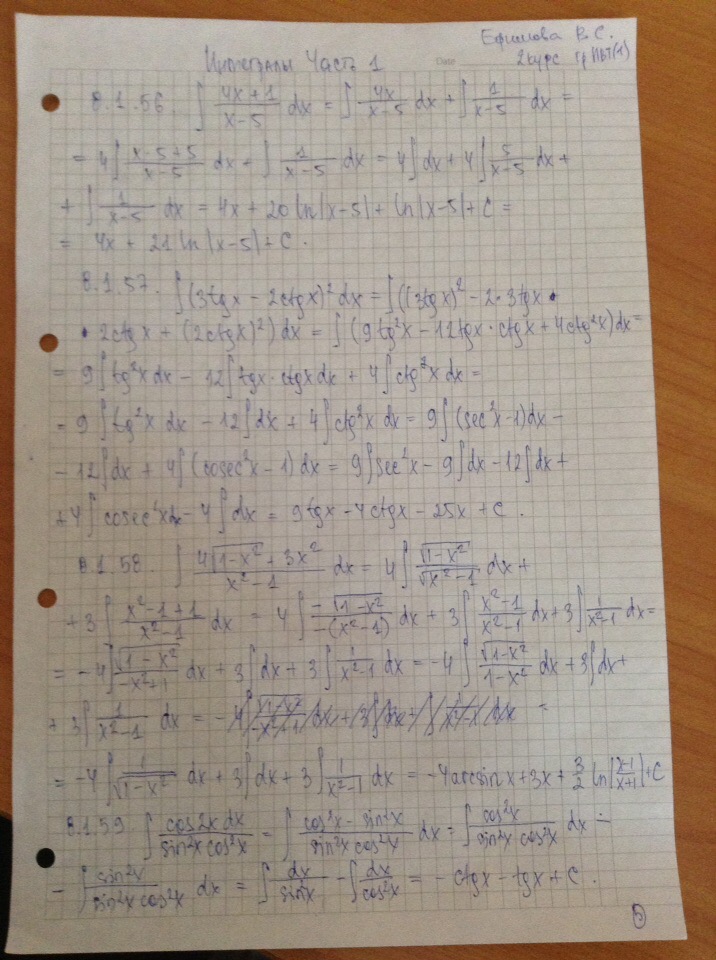 Ефимова В. С.
Интегралы Часть 1 Date 2 курс гр (1)
8.1.56. ∫ (4x+1)/(x-5) dx = ∫ 4x/(x-5) dx + ∫ 1/(x-5) dx =
= 4∫ (x-5+5)/(x-5) dx - ∫ 1/(x-5) dx = 4∫dx + 4∫ 5/(x-5) dx +
+ ∫ 1/(x-5) dx = 4x + 20 ln|x-5| + ln|x-5| + C =
= 4x + 21 ln|x-5| + C.
8.1.57. ∫(3tgx - 2ctgx)² dx = ∫((3tgx)² - 2·3tgx·
· 2ctgx + (2ctgx)²) dx = ∫(9tg²x - 12tgx·ctgx + 4ctg²x)dx =
= 9∫tg²x dx - 12∫tgx·ctgx dx + 4∫ctg²x dx =
= 9∫tg²x dx - 12∫dx + 4∫ctg²x dx = 9∫(sec²x-1)dx -
- 12∫dx + 4∫(cosec²x - 1)dx = 9∫sec²x - 9∫dx - 12∫dx +
+ 4∫cosec²x dx - 4∫dx = 9tgx - 4ctgx - 25x + C.
8.1.58. ∫ (4√(1-x²) + 3x²)/(x²-1) dx = 4∫ √(1-x²)/√(x²-1) dx +
+ 3∫ (x²-1+1)/(x²-1) dx = 4∫ -√(1-x²)/-(x²-1) dx + 3∫ (x²-1)/(x²-1) dx + 3∫ 1/(x²-1) dx =
= -4∫ √(1-x²)/(-x²+1) dx + 3∫dx + 3∫ 1/(x²-1) dx = -4∫ √(1-x²)/(1-x²) dx + 3∫dx +
+ 3∫ 1/(x²-1) dx = - =
= -4∫ 1/√(1-x²) dx + 3∫dx + 3∫ 1/(x²-1) dx = -4arcsin x + 3x + 3/2 ln|(x-1)/(x+1)| + C
8.1.59. ∫ cos2x dx/(sin²x cos²x) = ∫ (cos²x - sin²x)/(sin²x cos²x) dx = ∫ cos²x/(sin²x cos²x) dx -
- ∫ sin²x/(sin²x cos²x) dx = ∫ dx/sin²x - ∫ dx/cos²x = -ctgx - tgx + C.